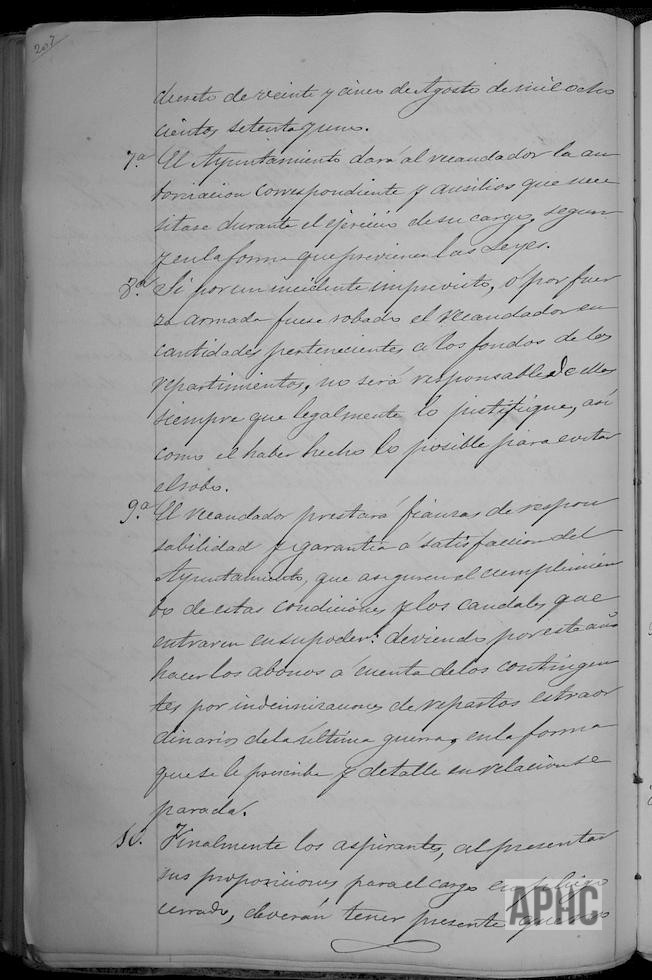 207
decreto de veinte y cinco de Agosto de mil ocho
cientos setenta y uno.
7ª El Ayuntamiento dará al recaudador la au
torizacion correspondiente y ausilios que nece
sitase durante el ejercicio de su cargo, segun
y en la forma que previenen las Leyes.
8ª Si por un incidente imprevisto, ó por fuer
za armada fuese robado el recaudador en
cantidades pertenecientes a los fondos de los
repartimientos, no será responsable de ellas
siempre que legalmente lo justifique, así
como el haber hecho lo posible para evitar
el robo.
9ª El recaudador prestará fianzas de respon
sabilidad y garantia a satisfaccion del
Ayuntamiento, que aseguren el cumplimien
to de estas condiciones y los caudales que
entraren en su poder: deviendo por este año
hacer los abonos á cuenta de los contingen
tes por indemnizaciones de repartos estraor
dinarios de la última guerra, en la forma
que se le prescriba y detalle en relacion se
parada.
10. Finalmente los aspirantes, al presentar
sus proposiciones para el cargo en pliego
cerrado, deverán tener presente que
APHC